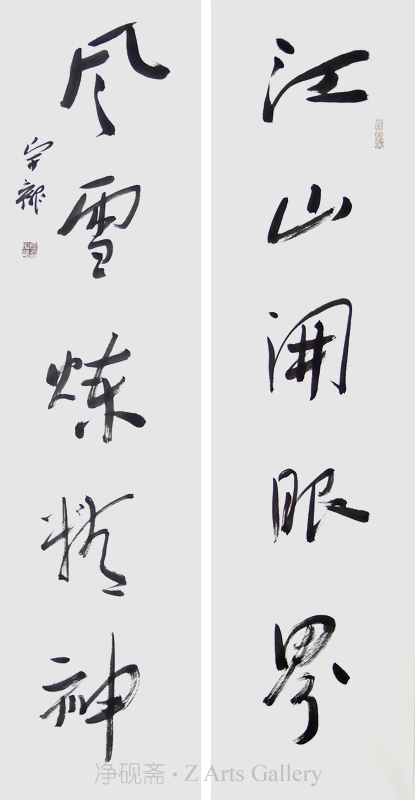 江山开眼界
风雪炼精神
宗龍
净砚斋·Z Arts Gallery